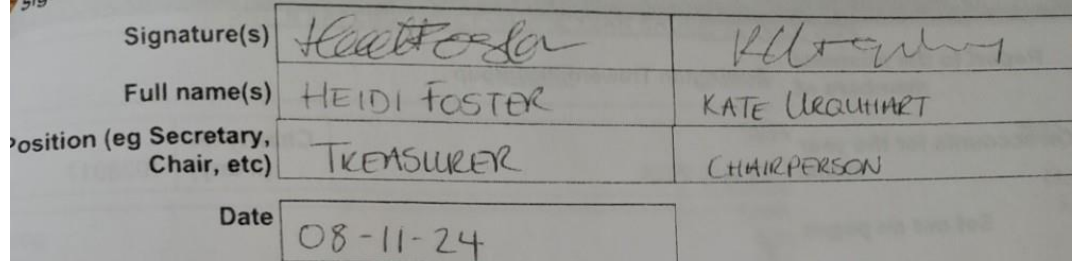 Signature(s)
Full name(s) HEIDI FOSTER KATE URQUHART
Position (eg Secretary, TREASURER CHAIRPERSON
Chair, etc)
Date 08-11-24